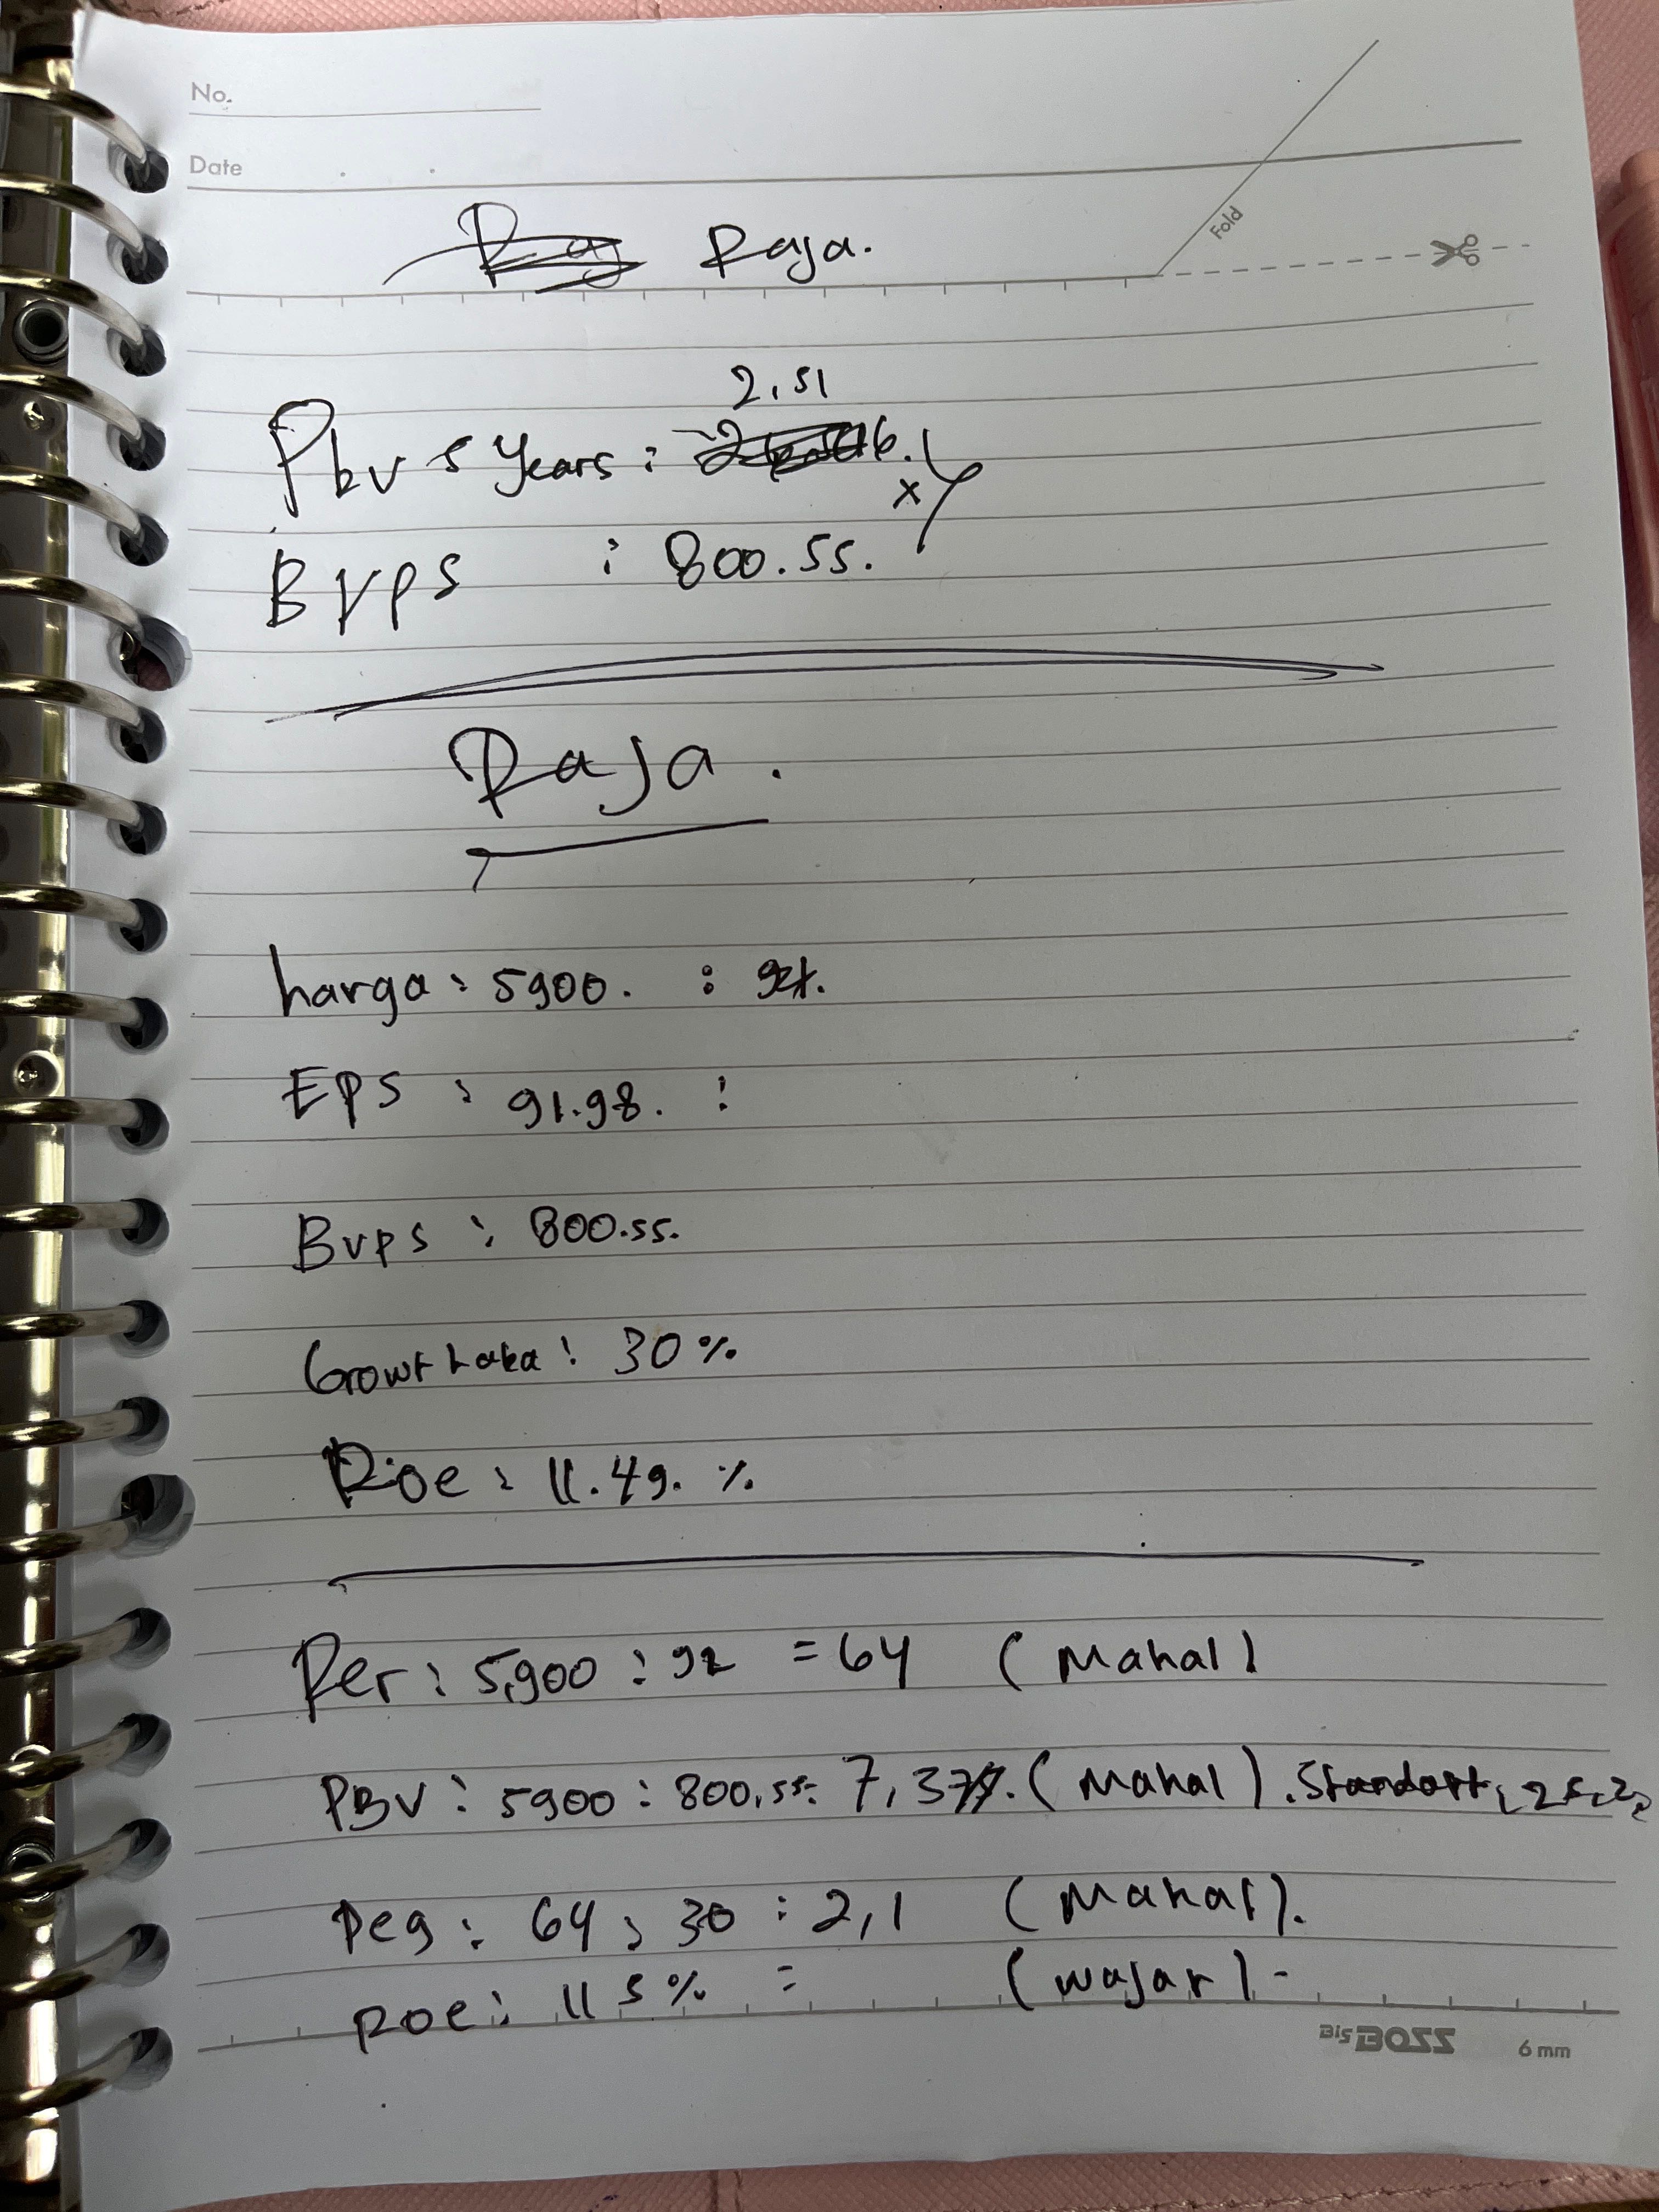 No.
Date
Fold
Raja.
2,51
Pbv 5 Years :
x
BVPS : 800.55.
Raja.
harga : 5900. :
EPS : 91.98. :
Bvps : 800.55.
30%
Roe : 11.49. %
Per : 5,900 : 92 = 64 (Mahal)
PBV : 5900 : 800,55: 7,37 (Mahal).
Peg : 64 : 30 : 2,1 (Mahal).
ROE : 11 5% = (wajar) -
Bis BOSS 6 mm